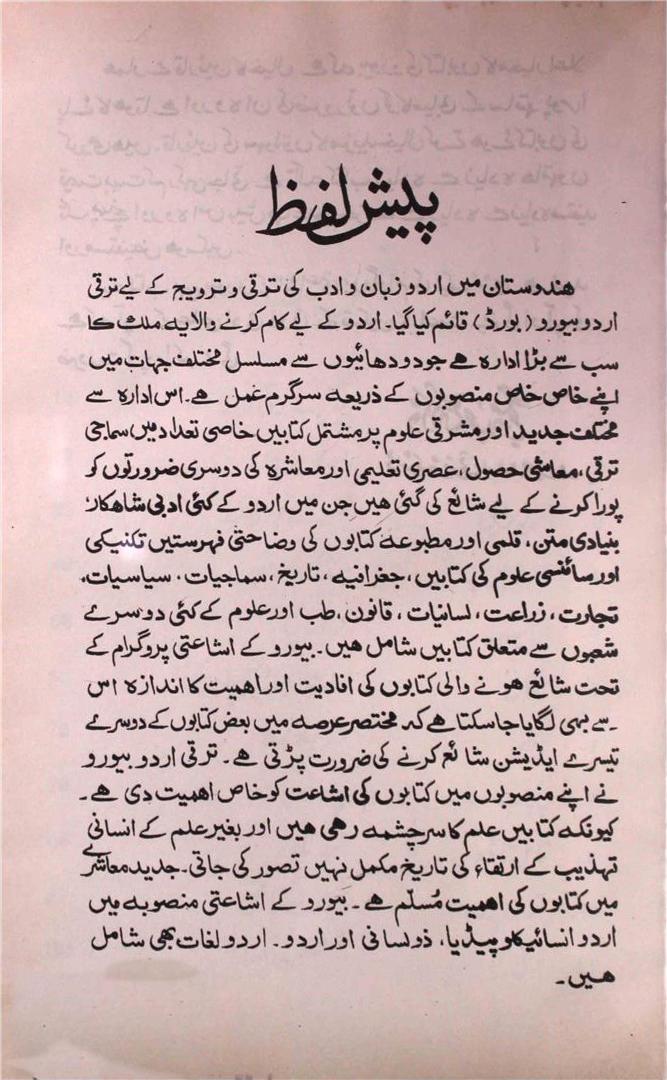 پیش لفظ
ھندوستان میں اردو زبان و ادب کی ترقی و ترویج کے لیے ترقی
اردو بیورو (بورڈ) قائم کیا گیا۔ اردو کے لیے کام کرنے والا یہ ملک کا
سب سے بڑا ادارہ ہے جو دو دھائیوں سے مسلسل مختلف جہات میں
اپنے خاص خاص منصوبوں کے ذریعہ سرگرم عمل ہے۔ اس ادارہ سے
مختلف جدید اور مشرقی علوم پر مشتمل کتابیں خاصی تعداد میں سماجی
ترقی، معاشی حصول، عصری تعلیمی اور معاشرہ کی دوسری ضرورتوں کو
پورا کرنے کے لیے شائع کی گئی ھیں جن میں اردو کے کئی ادبی شاھکار،
بنیادی متن، قلمی اور مطبوعہ کتابوں کی وضاحتی فہرستیں تکنیکی
اور سائنسی علوم کی کتابیں، جغرافیہ، تاریخ، سماجیات، سیاسیات،
تجارت، زراعت، لسانیات، قانون، طب اور علوم کے کئی دوسرے
شعبوں سے متعلق کتابیں شامل ھیں۔ بیورو کے اشاعتی پروگرام کے
تحت شائع ھونے والی کتابوں کی افادیت اور اھمیت کا اندازہ اس
سے بھی لگایا جاسکتا ہے کہ مختصر عرصہ میں بعض کتابوں کے دوسرے
تیسرے ایڈیشن شائع کرنے کی ضرورت پڑتی ھے۔ ترقی اردو بیورو
نے اپنے منصوبوں میں کتابوں کی اشاعت کو خاص اھمیت دی ھے۔
کیونکہ کتابیں علم کا سرچشمہ رھی ھیں اور بغیر علم کے انسانی
تہذیب کے ارتقاء کی تاریخ مکمل نہیں تصور کی جاتی۔ جدید معاشرے
میں کتابوں کی اھمیت مُسلّم ھے۔ بیورو کے اشاعتی منصوبہ میں
اردو انسائیکلوپیڈیا، ذولسانی اور اردو۔ اردو لغات بھی شامل
ھیں۔